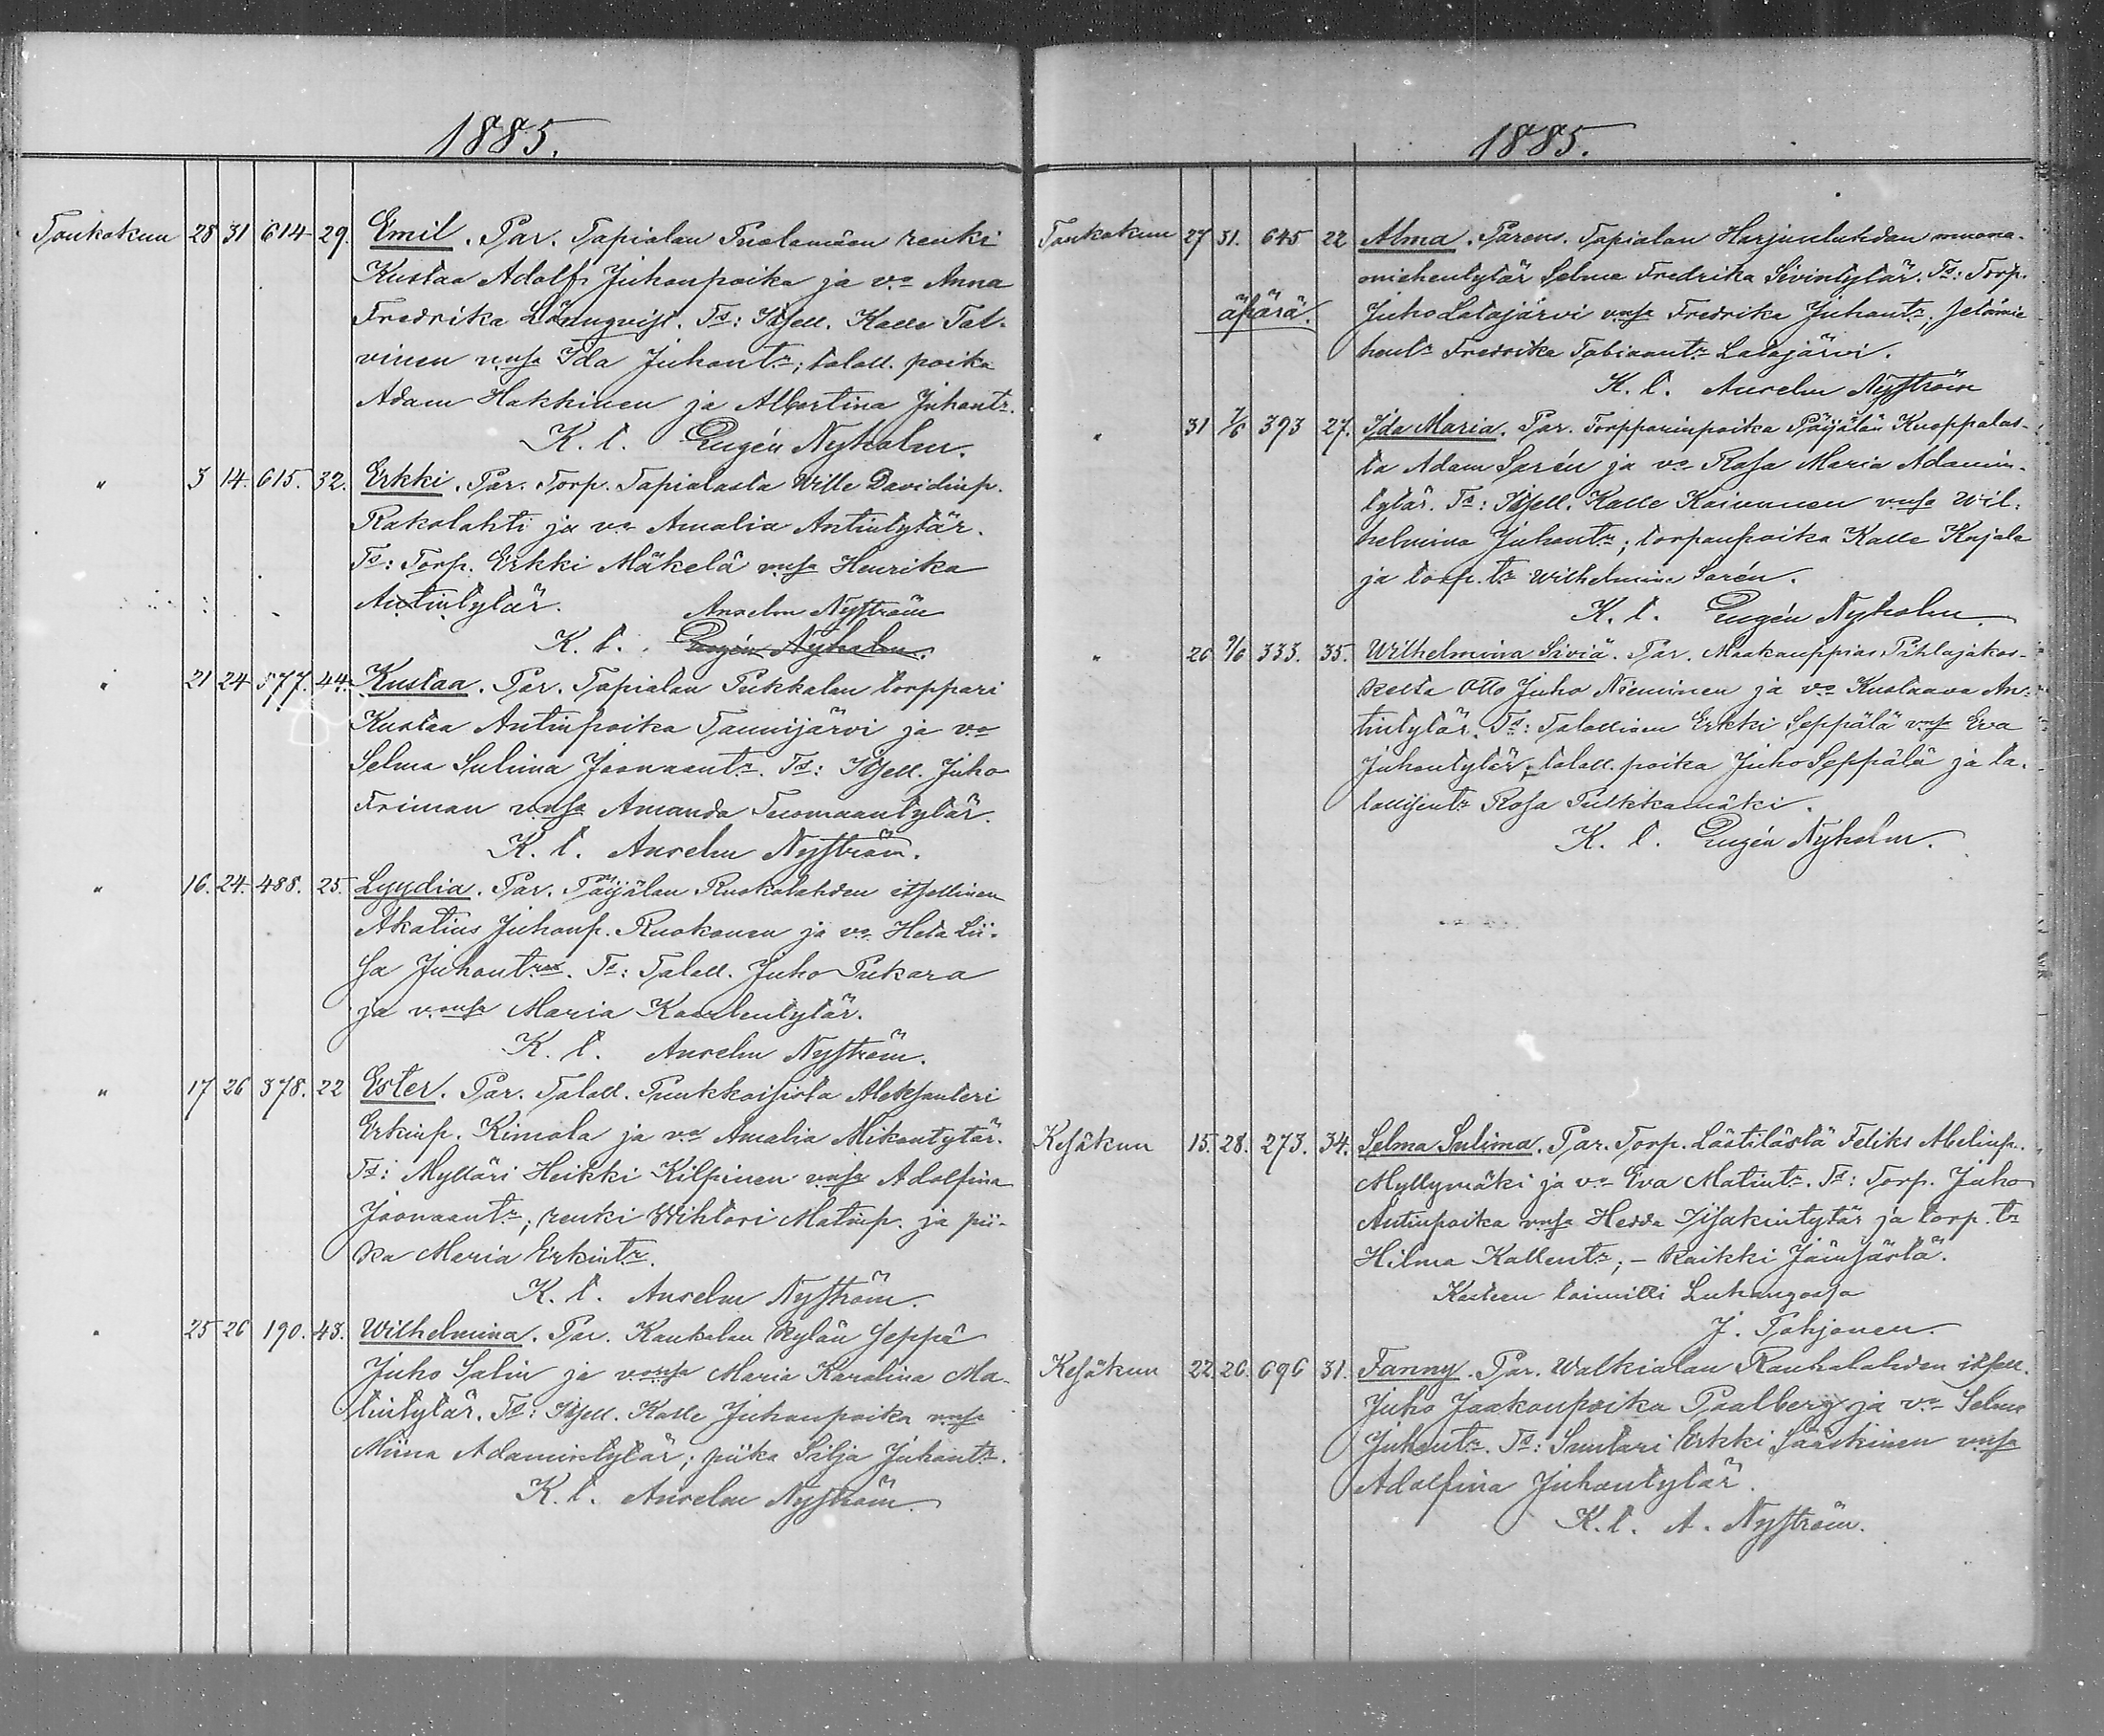 1885.
Toukokuu 28 31 614 29. Emil. Par. Tapialan Tuolamäen renki
Kustaa Adolf Juhonpoika ja vo Anna
Fredrika Lönnqvist. Ts: Itsell. Kalle Tal-
vinen vnsa Ida Juhontr; taloll. poika
Adam Hakkinen ja Albertina Juhontr.
K. t. Eugén Nyholm.
" 3 14. 615. 32. Erkki. Par. Torp. Tapialasta Wille Davidinp.
Rakolahti ja vo Amalia Antintytär.
Ts: Torp. Erkki Mäkelä vnsa Henrika
Antintytär. Anselm Nyström
K. t. Eugén Nyholm.
" 21 24 577. 44. Kustaa. Par. Tapialan Pukkalan torppari
Kustaa Antinpoika Taunijärvi ja vo
Selma Sulima Joonaantr. Ts: Itsell. Juho
Friman vnsa Amanda Tuomaantytär.
K. t. Anselm Nyström.
" 16. 24. 488. 25. Lyydia. Par. Päijälän Ruokolahden itsellinen
Akatius Juhonp. Ruokonen ja vo Heta Lii-
sa Juhontr. Ts: Taloll. Juho Pukara
ja vonsa Maria Kaarlentytär.
K. t. Anselm Nyström.
" 17 26 378. 22 Ester. Par. Taloll. Puukkoisista Aleksanteri
Erkinp. Kimola ja vo Amalia Mikontytär.
Ts: Mylläri Heikki Kilpinen vnsa Adolfina
Joonaantr; renki Wihtori Matinp. ja pii-
ka Maria Erkintr.
K. t. Anselm Nyström.
" 25 26 190. 43. Wilhelmina. Par. Kaukolan kylän seppä
Juho Salin ja vonsa Maria Karolina Ma-
tintytär. Ts: Itsell. Kalle Juhonpoika vnsa
Miina Adamintytär; piika Silja Juhontr.
K. t. Anselm Nyström.
1885.
Toukokuu 27 31. 645 22 Alma. Parens. Tapialan Harjunlahden muona-
miehentytär Selma Fredrika Sivintytär. Ts: Torp.
äpärä. Juho Latojärvi vnsa Fredrika Juhontr;
hentr Fredrika Tobiaantr Latojärvi.
K. t. Anselm Nyström
" 31 7/6 393 27. Ida Maria. Par. Torpparinpoika Päijälän Kuoppalas-
ta Adam Sarén ja vo Rosa Maria Adamin-
tytär. Ts: Itsell. Kalle Koivunen vnsa Wil-
helmina Juhontr; torpanpoika Kalle Kojola
ja torp. tr Wilhelmina Sarén.
K. t. Eugén Nyholm.
" 26 7/6 333. 35. Wilhelmiina Siviä. Par. Maakauppias Pihlajakos-
kelta Otto Juho Nieminen ja vo Kustaava An-
tintytär. Ts: Talollisen Erkki Seppälä vnsa Eva
Juhontytär; taloll. poika Juho Seppälä ja ta-
lollisentr Rosa Pulkkamäki.
K. t. Eugén Nyholm.
Kesäkuu 15. 28. 273. 34. Selma Sulima. Par. Torp. Lästilästä Feliks Abelinp.
Myllymäki ja vo Eva Matintr. Ts: Torp. Juho
Antinpoika vnsa Hedda Iisakintytär ja torp. tr
Hilma Kallentr; – kaikki Jämsästä.
Kasteen toimitti Luhangossa
J. Pohjonen.
Kesäkuu 22. 26. 696 31. Fanny. Par. Walkialan Rauhalahden itsell.
Juho Jaakonpoika Paalberg ja vo Selma
Juhontr. Ts: Suutari Erkki Sääskinen vnsa
Adolfina Juhontytär.
K. t. A. Nyström.